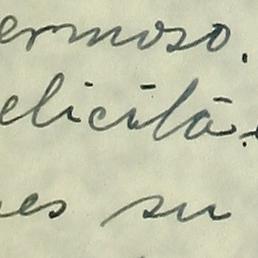 ermoso.
elicitā
es su